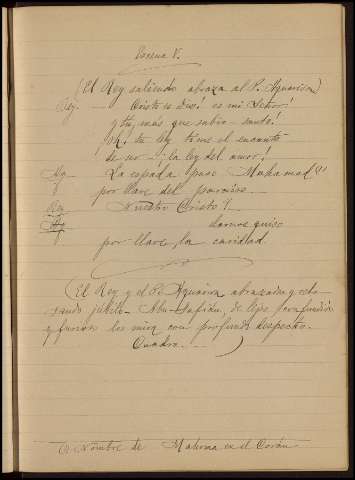 Escena V.
(El Rey saliendo abraza al P. Aquaviva)
Rey. Cristo es Dios! es mi Señor!
y tú, más que sabio santo!
Oh! tu ley tiene el encanto
de ser la ley del amor!
Aq La espada puso Muhamad (1)
por llave del paraiso.
Rey Nuestro Cristo
Aq darnos quiso
por llave la caridad.
(El Rey y el P. Aquaviva abrazados y
júbilo. Abu-Sofián, de lejos
y furioso los mira con profundo despecho.
Cuadro. )
Nombre de Mahoma en el Corán